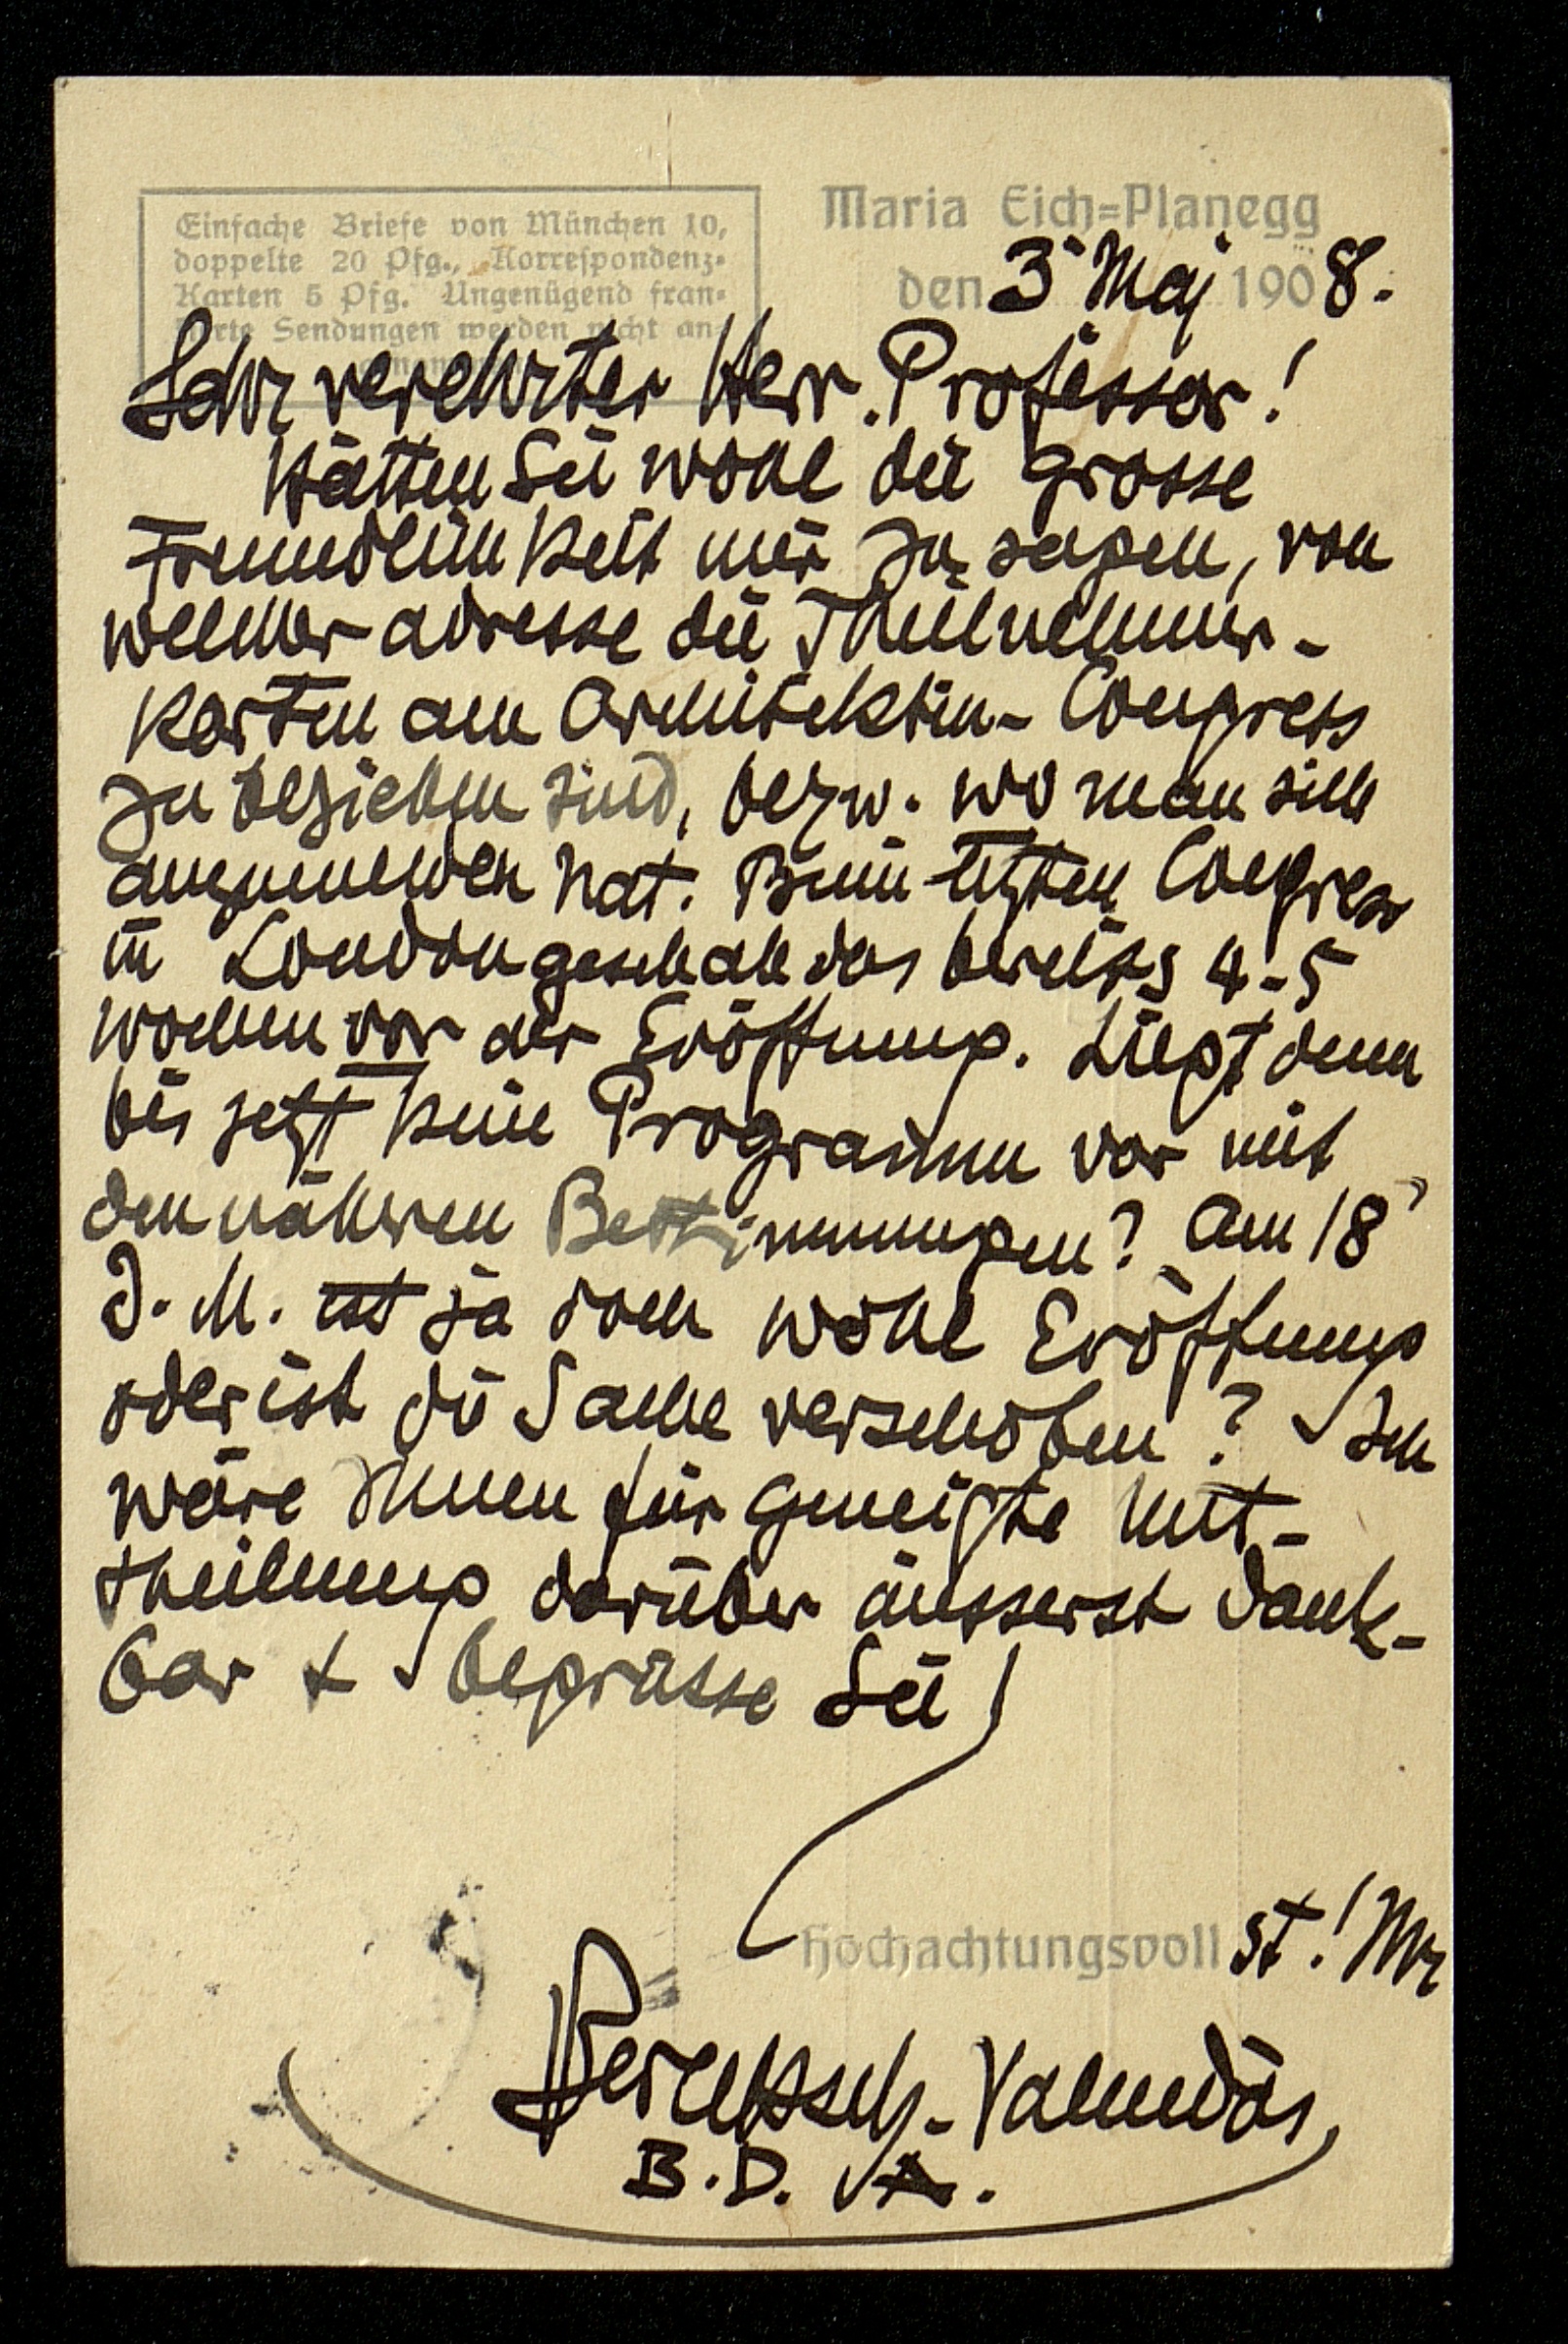 Einfache Briefe von München 10,
doppelte 20 Pfg., Korrespondenz-
Karten 5 Pfg. Ungenügend fran-
Sendungen werden nicht an-
Maria Eich=Planegg
den 3. Maj 1908.
Sehr verehrter Herr Professor!
Hätten Sie wohl die grosse
Freundlichkeit mir zu sagen, von
welcher Adresse die Theilnehmer-
karten am Architekten-Congress
zu beziehen sind, bezw. wo man sich
anzumelden hat. Beim letzten Congress
in London geschah das bereits 4-5
Wochen vor der Eröffnung. Liegt denn
bis jetzt kein Programm vor mit
den näheren Bestimmungen? Am 18
d. M. ist ja doch wohl Eröffnung
oder ist die Sache verschoben? Ich
wäre Ihnen für geneigte Mit-
theilung darüber äusserst dank-
bar + begrüsse Sie
hochachtungsvollst! Ihr
Berlepsch-Valendàs,
B.D.A.